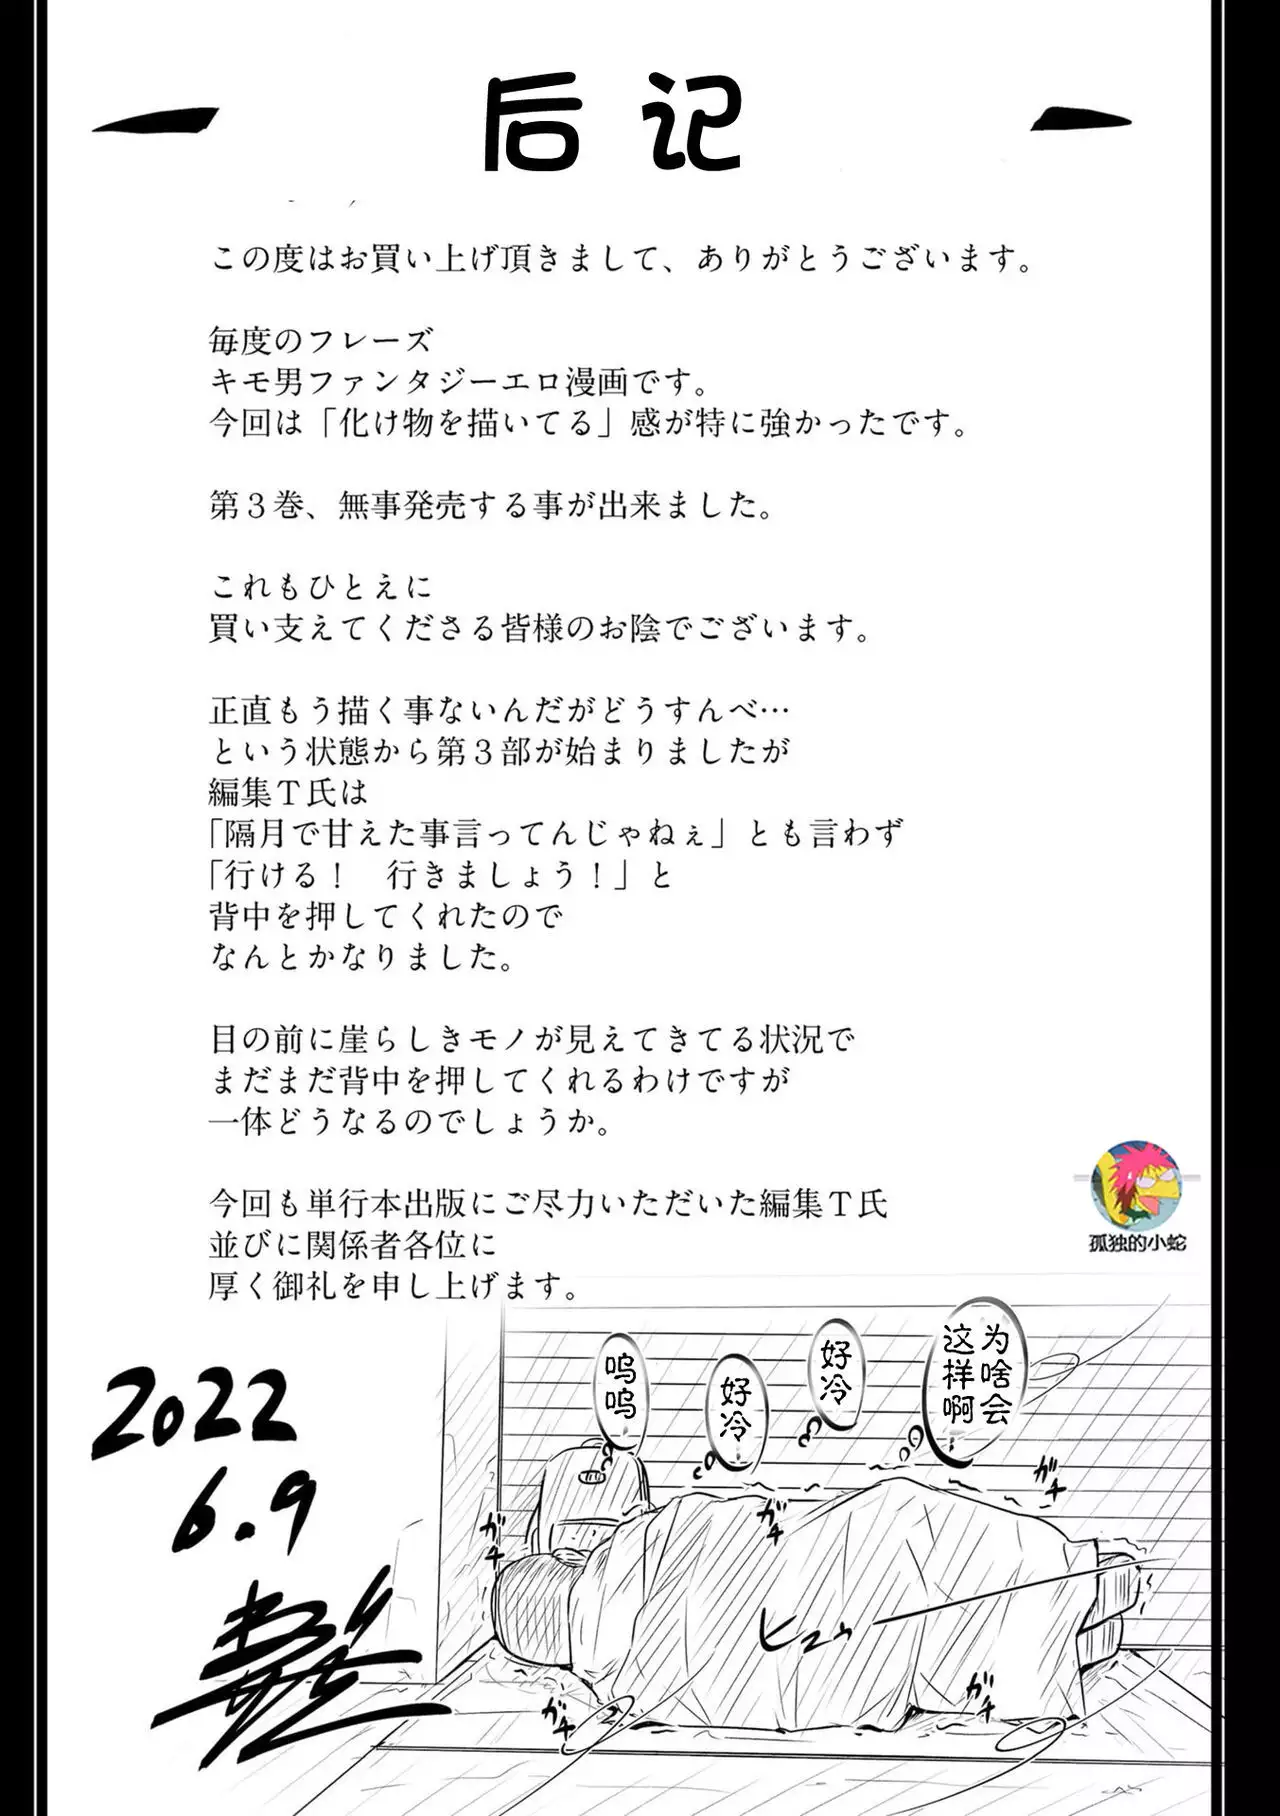 后记
この度はお買い上げ頂きまして、ありがとうございます。
毎度のフレーズ
キモ男ファンタジーエロ漫画です。
今回は「化け物を描いてる」感が特に強かったです。
第３巻、無事発売する事が出来ました。
これもひとえに
買い支えてくださる皆様のお陰でございます。
正直もう描く事ないんだがどうすんべ…
という状態から第３部が始まりましたが
編集Ｔ氏は
「隔月で甘えた事言ってんじゃねぇ」とも言わず
「行ける！　行きましょう！」と
背中を押してくれたので
なんとかなりました。
目の前に崖らしきモノが見えてきてる状況で
まだまだ背中を押してくれるわけですが
一体どうなるのでしょうか。
今回も単行本出版にご尽力いただいた編集Ｔ氏
並びに関係者各位に
厚く御礼を申し上げます。
孤独的小蛇
为啥会
这样啊
好冷
好冷
呜呜
ガチ
ガチ
ガチ
ガチ
ヒュゥ
2022
6.9